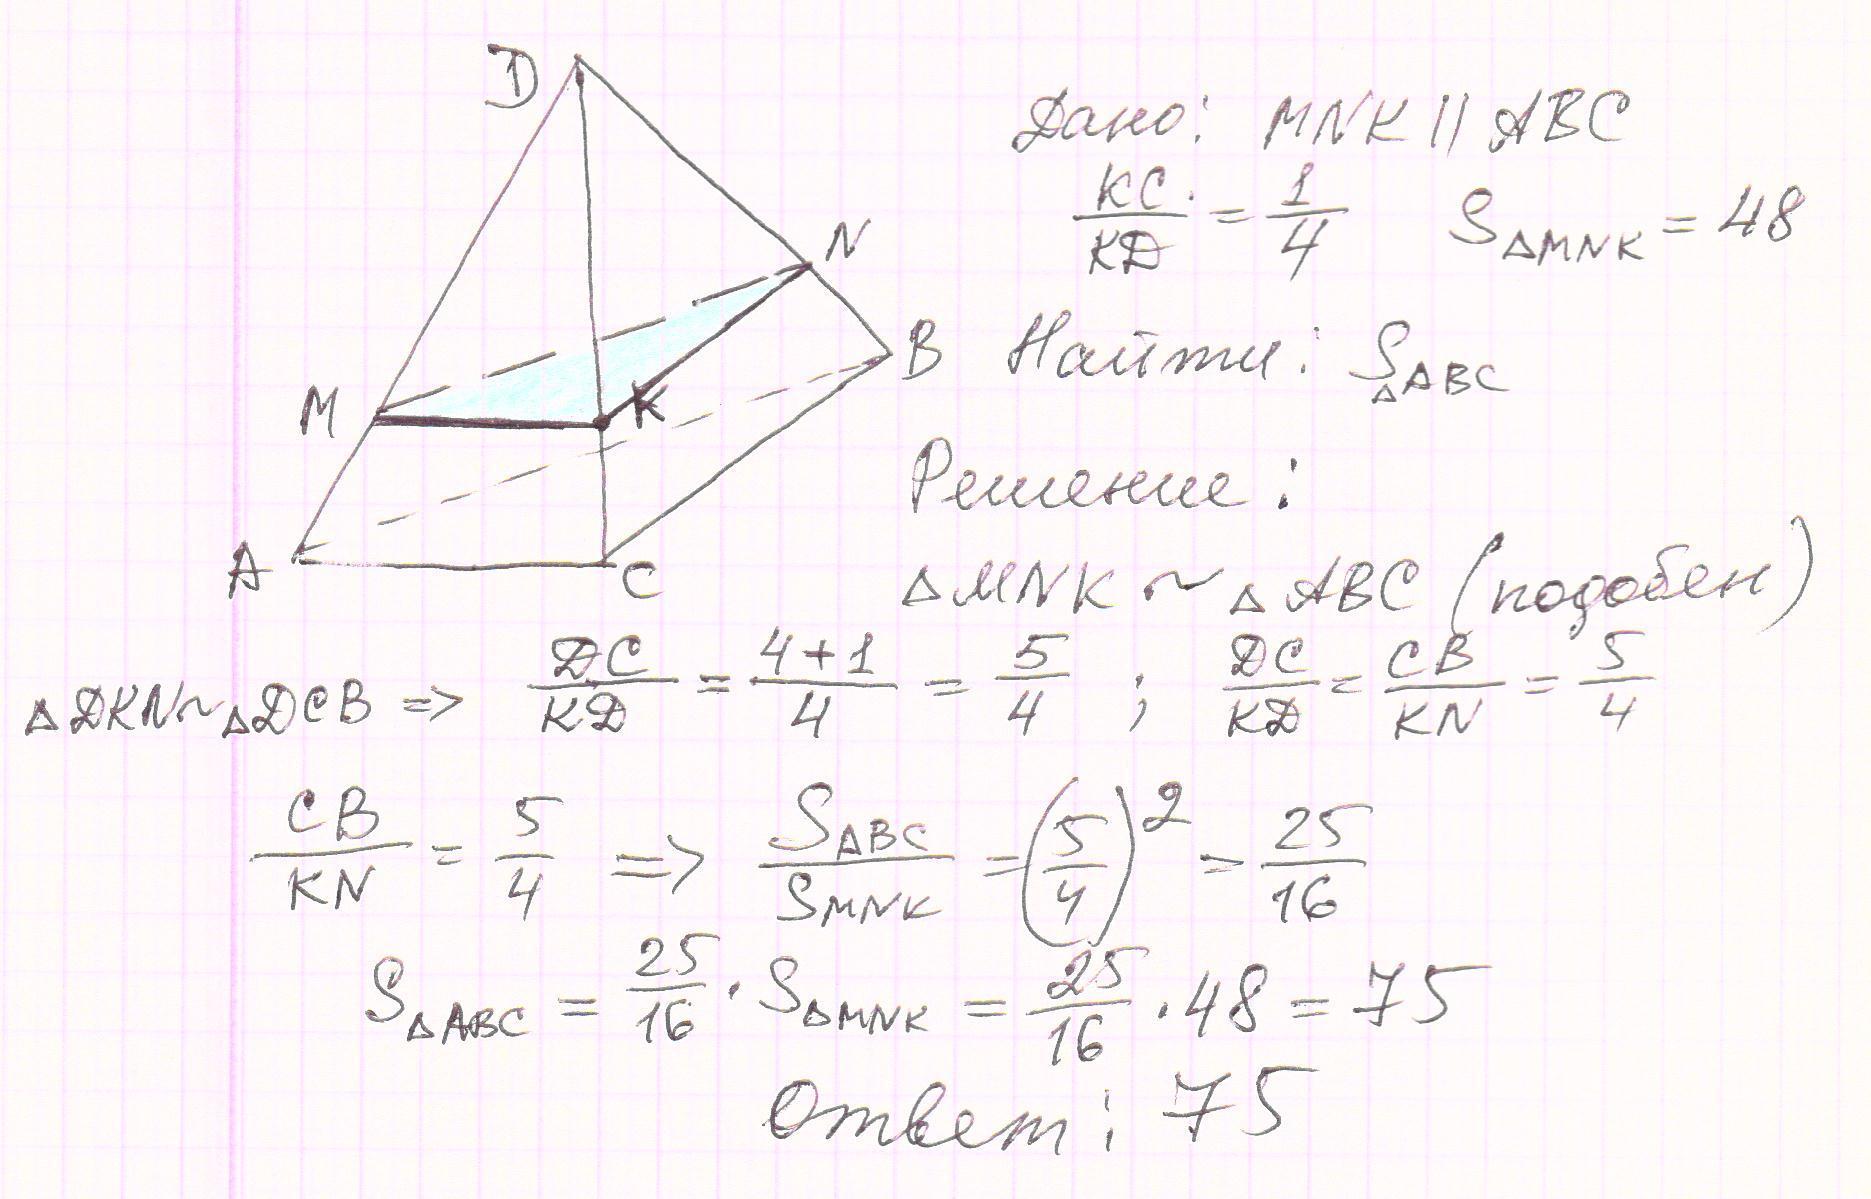 D
N
B
M
K
A
C
Дано: MNK || ABC
KC/KD = 1/4 S△MNK = 48
Найти: S△ABC
Решение:
△MNK ~ △ABC (подобен)
△DKN ~ △DCB => DC/KD = 4+1/4 = 5/4 ; DC/KD = CB/KN = 5/4
CB/KN = 5/4 => SABC/SMNK = (5/4)² = 25/16
S△ABC = 25/16 · S△MNK = 25/16 · 48 = 75
Ответ: 75